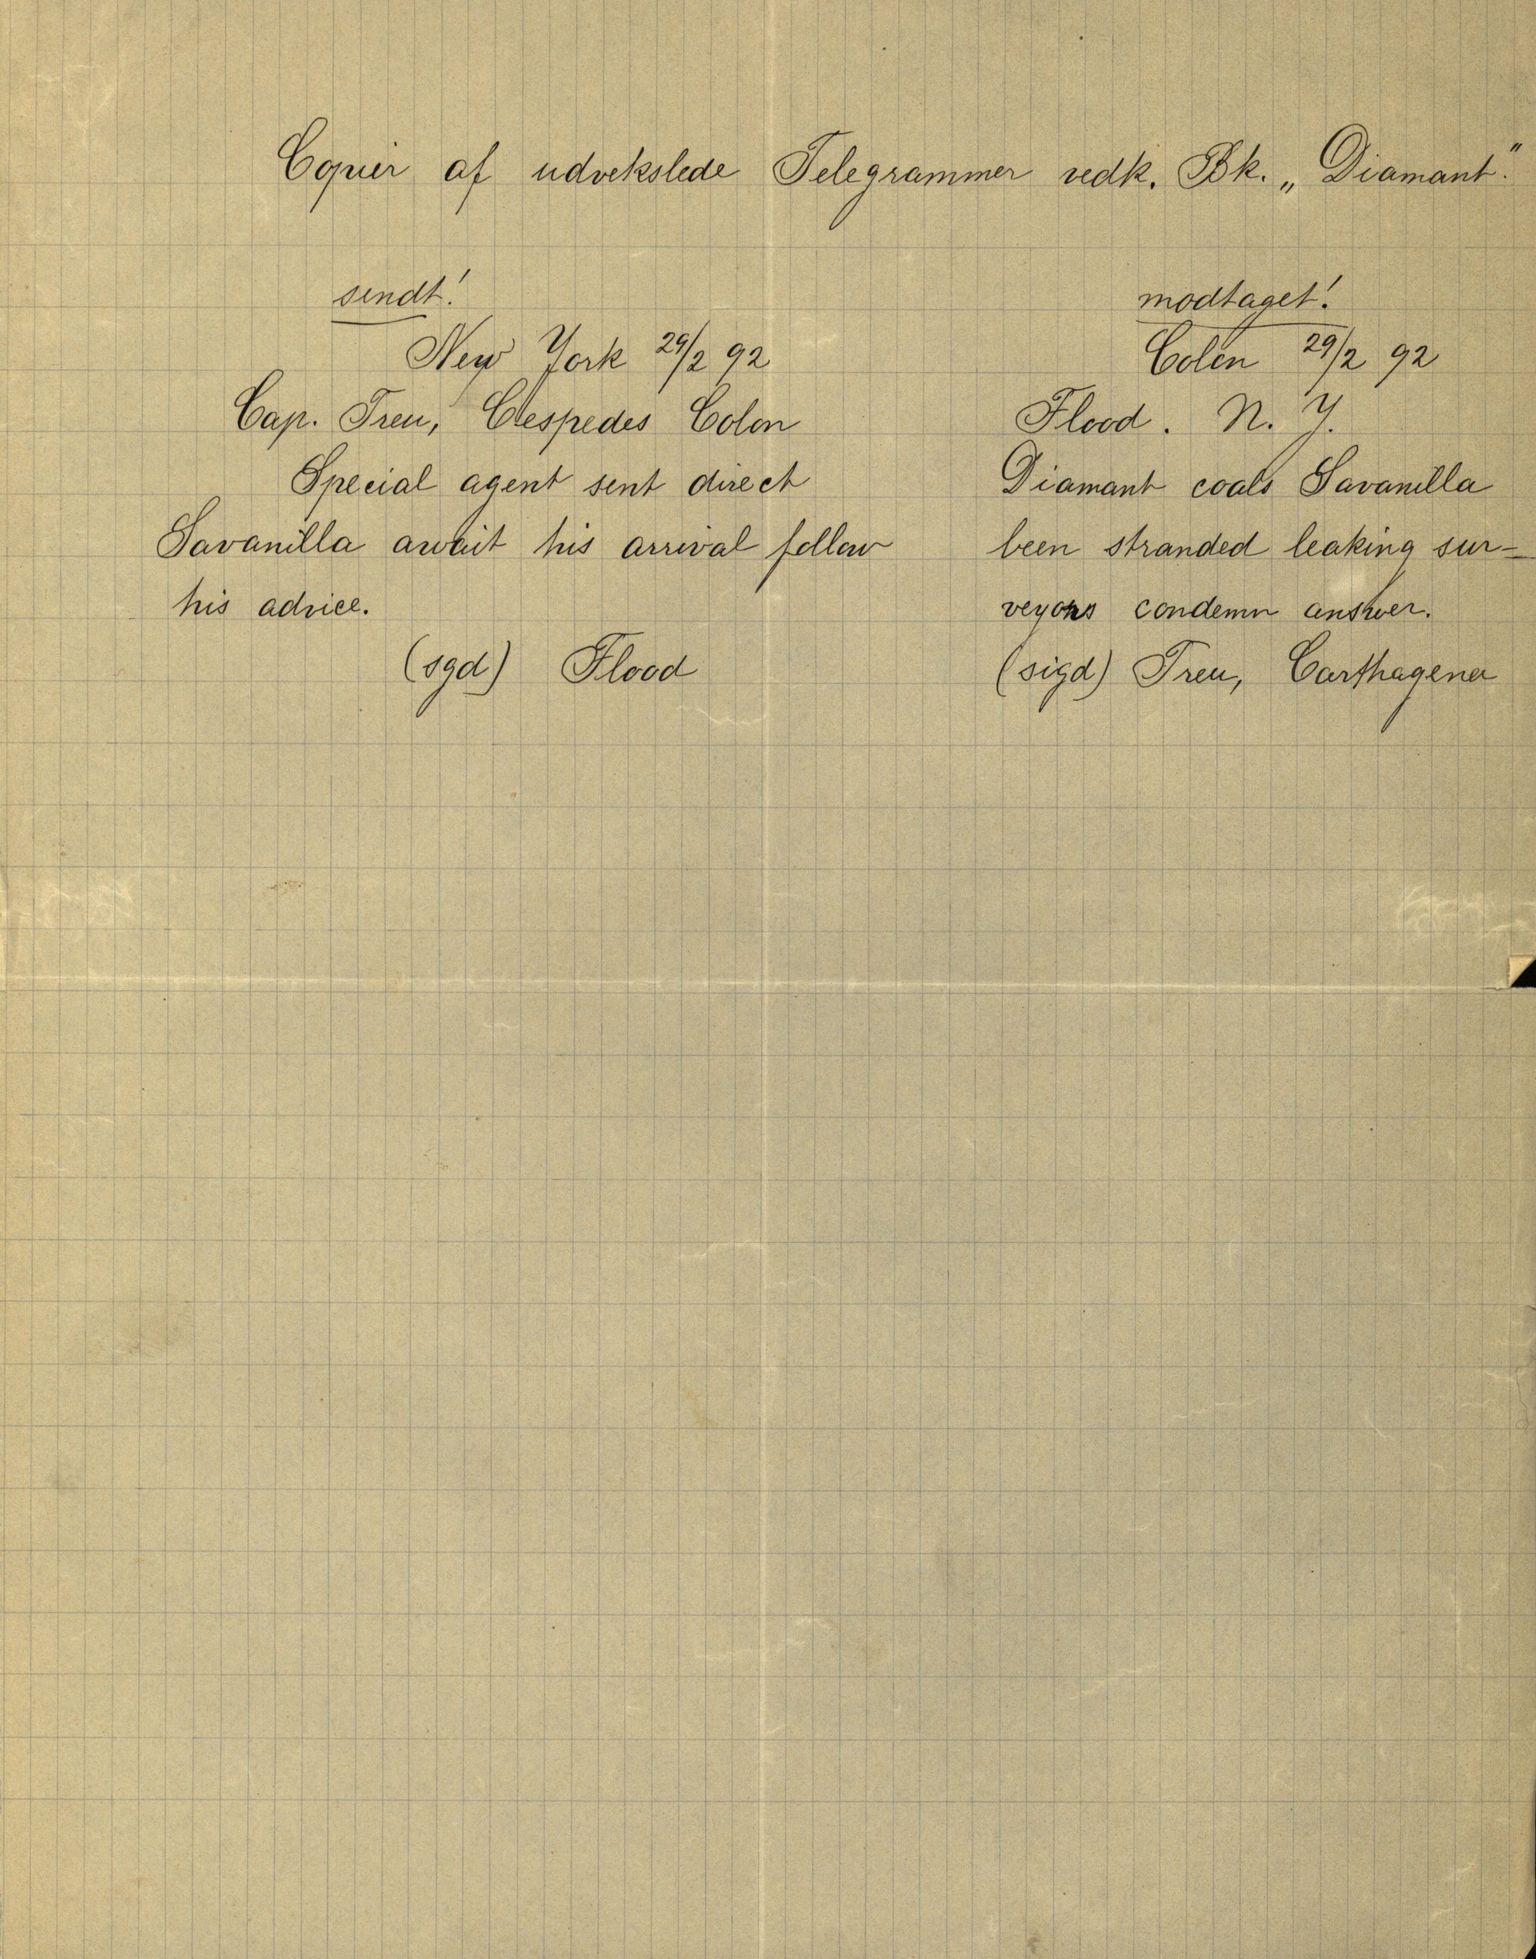 Copier af udvekslede Telegrammer vedk. Bk. „Diamant".
sendt!
New York 29/2 92
Cap. Treu, Cespedes Colon
Special agent sent direct
Savanilla await his arrival follow
his advice.
(sgd) Flood
modtaget!
Colon 29/2 92
Flood. N. Y.
Diamant coals Savanilla
been stranded leaking sur-
veyors condemn answer.
(sigd) Treu, Carthagena